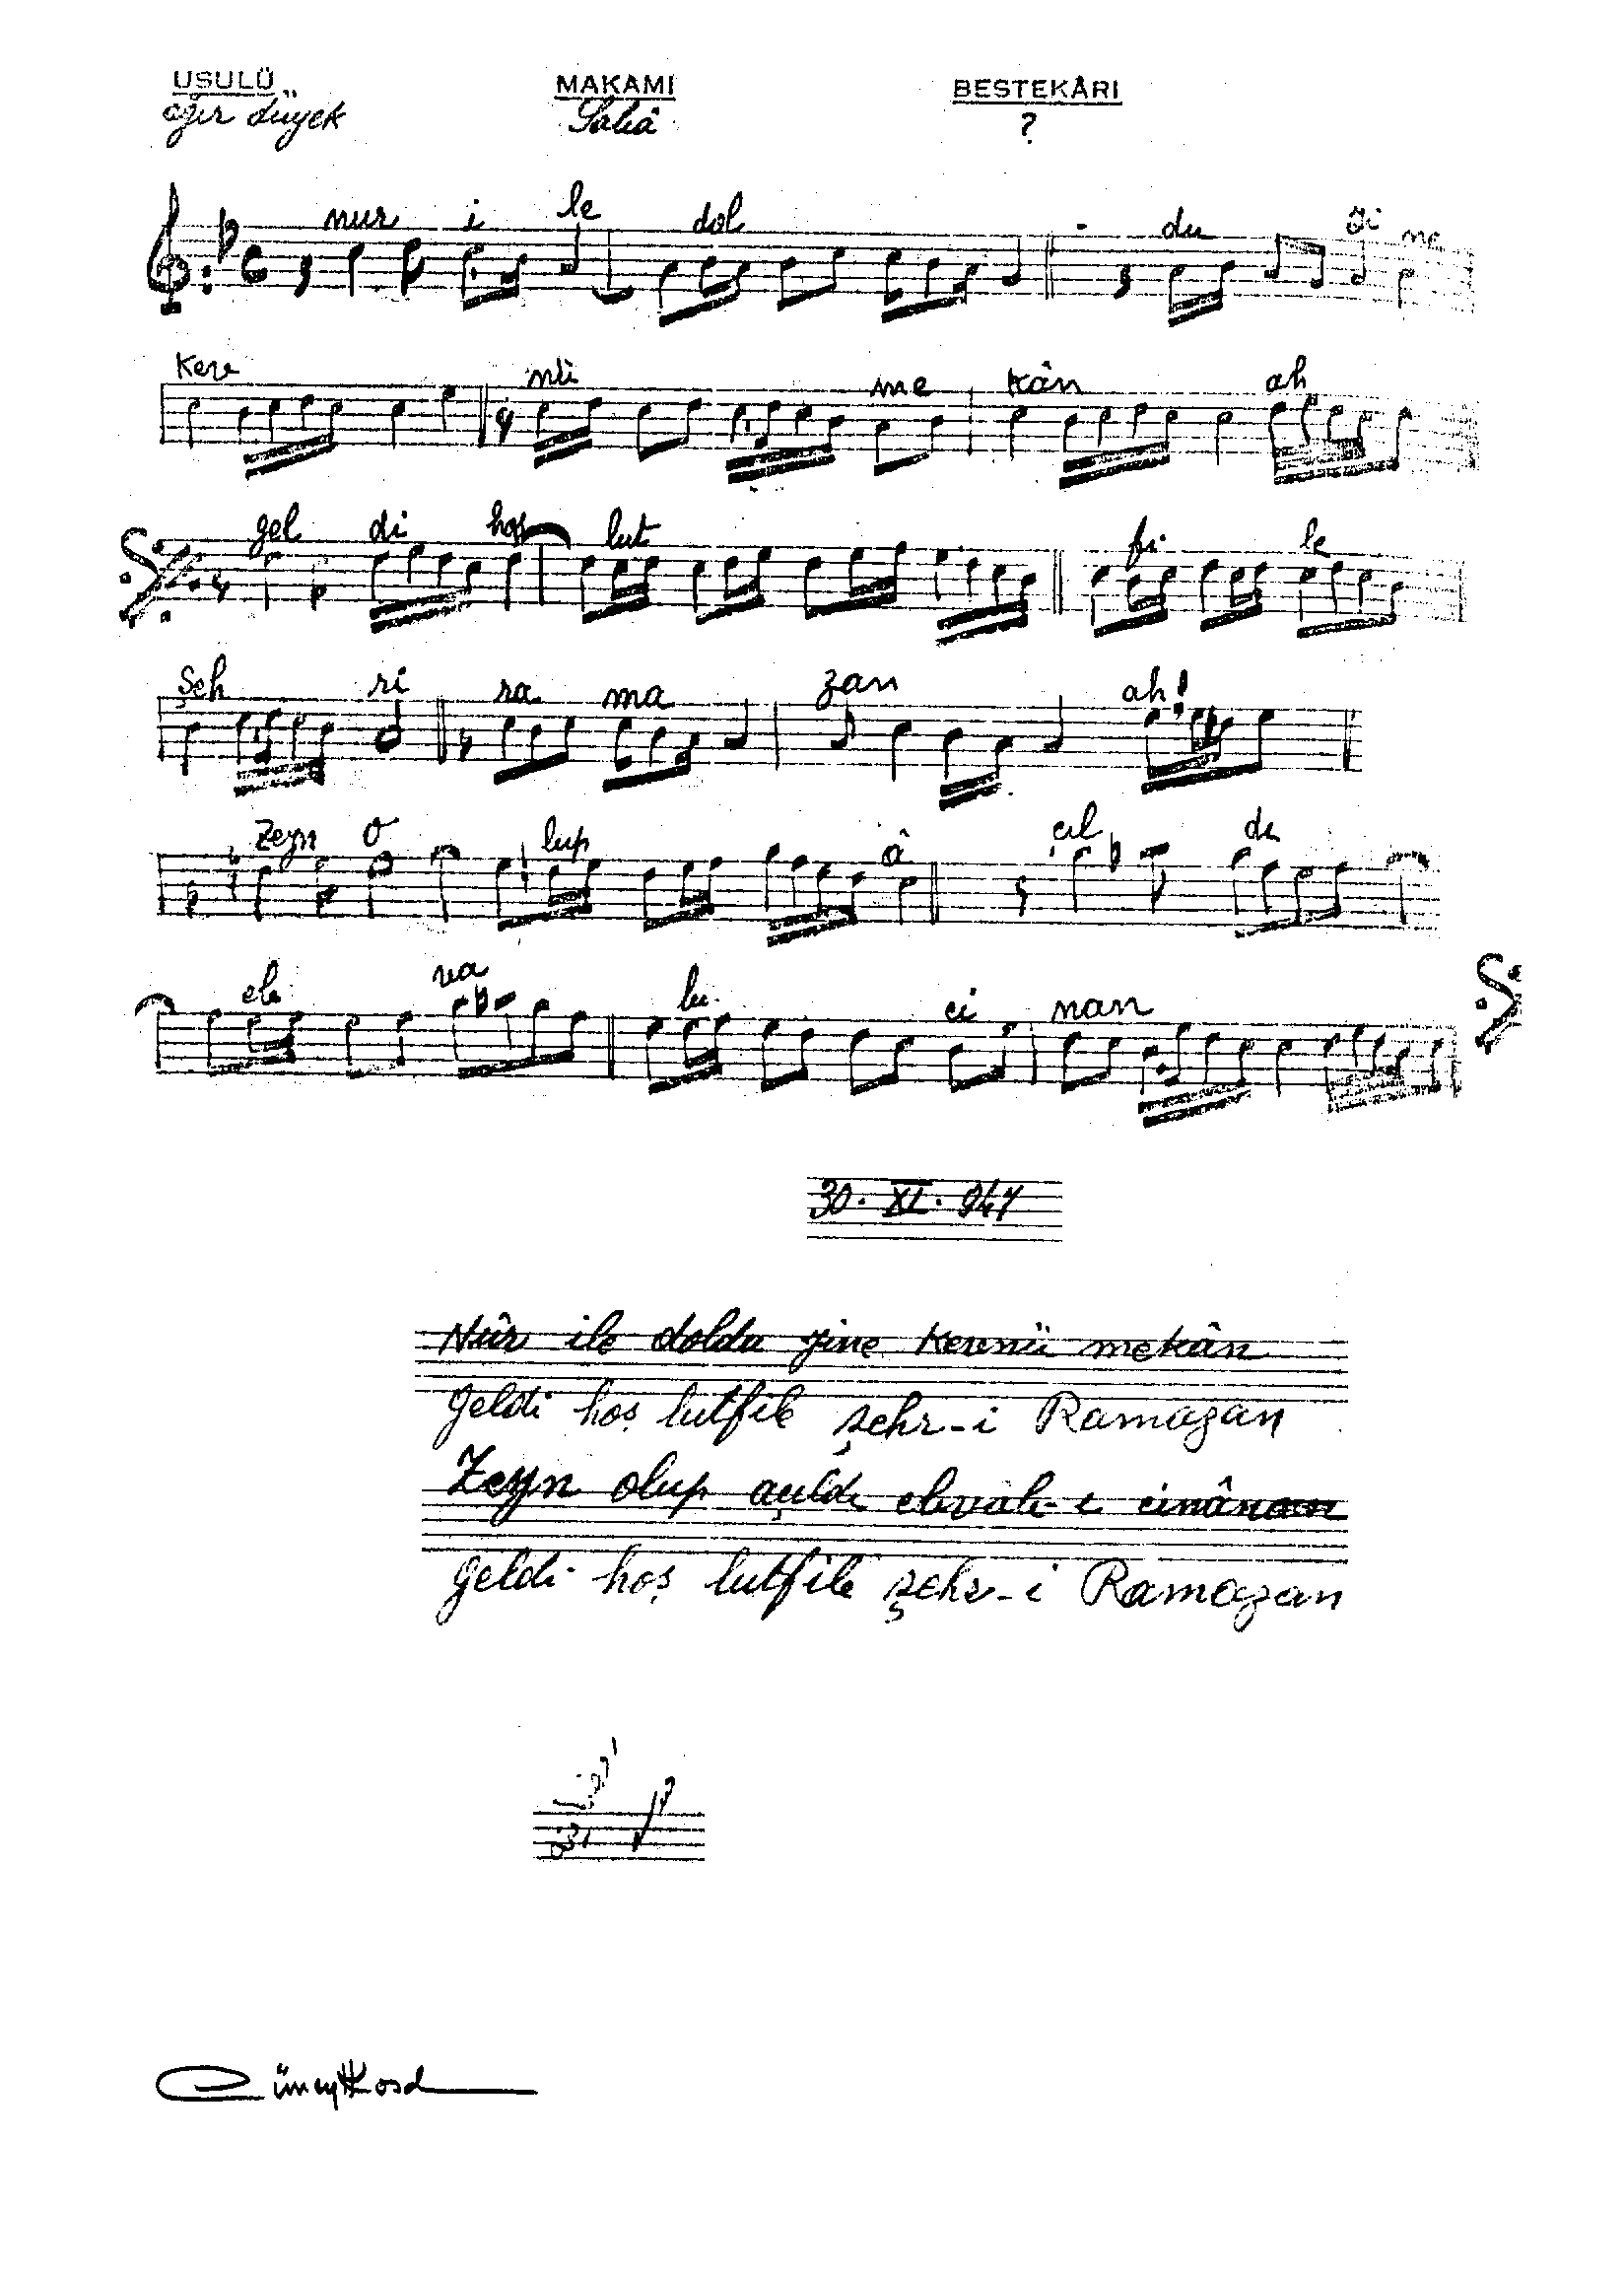 USULÜ MAKAMI BESTEKÂRI
ağır düyek Sabâ ?
nur i le dol du yi ne
Kev nü me kân ah
gel di hoş lut fi le
Şeh ri ra ma zan ah!
Zeyn o lup a çıl dı
eb va bı ci nan
30. XI. 947
Nûr ile doldu yine Kevnü mekân
Geldi hoş lutfile şehr-i Ramazan
Zeyn olup açıldı ebvab-ı cinânan
Geldi hoş lutfile şehr-i Ramazan
Cüneyt Kosal